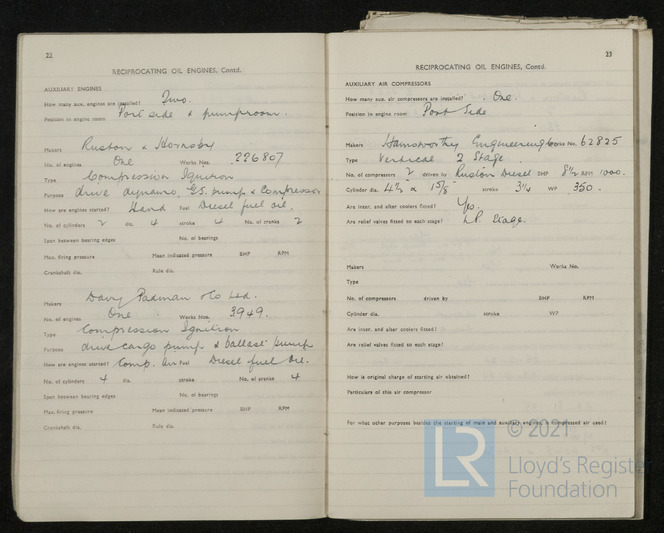 22
RECIPROCATING OIL ENGINES, Contd.
AUXILIARY ENGINES
How many aux. engines are installed? Two.
Position in engine room Port side & pumproom.
Makers Ruston & Hornsby
No. of engines One Works Nos. 226807
Type Compression Ignition
Purpose drive dynamo, G.S. pump & Compressor
How are engines started? Hand Fuel Diesel fuel oil.
No. of cylinders 2 dia. 4 stroke 4 No. of cranks 2
Span between bearing edges No. of bearings
Max. firing pressure Mean indicated pressure BHP RPM
Crankshaft dia. Rule dia.
Makers Davy Paxman & Co Ltd.
No. of engines One Works Nos. 3949.
Type Compression Ignition
Purpose drive cargo pump & ballast pump
How are engines started? Comp. Air Fuel Diesel fuel oil.
No. of cylinders 4 dia. stroke No. of cranks 4
Span between bearing edges No. of bearings
Max. firing pressure Mean indicated pressure BHP RPM
Crankshaft dia. Rule dia.
23
RECIPROCATING OIL ENGINES, Contd.
AUXILIARY AIR COMPRESSORS
How many aux. air compressors are installed? One.
Position in engine room Port Side
Makers Hamworthy Engineering Works No. 62825
Type Vertical 2 Stage
No. of compressors 2 driven by Ruston Diesel BHP 8½ RPM 1000.
Cylinder dia. stroke 3¼ WP 350.
Are inter. and after coolers fitted? Yes.
Are relief valves fitted to each stage? LP Stage.
Makers Works No.
Type
No. of compressors driven by BHP RPM
Cylinder dia. stroke WP
Are inter. and after coolers fitted?
Are relief valves fitted to each stage?
How is original charge of starting air obtained?
Particulars of this air compressor
For what other purposes besides the starting of main and auxiliary engines is compressed air used?
LR
© 2021
Lloyd's Register
Foundation